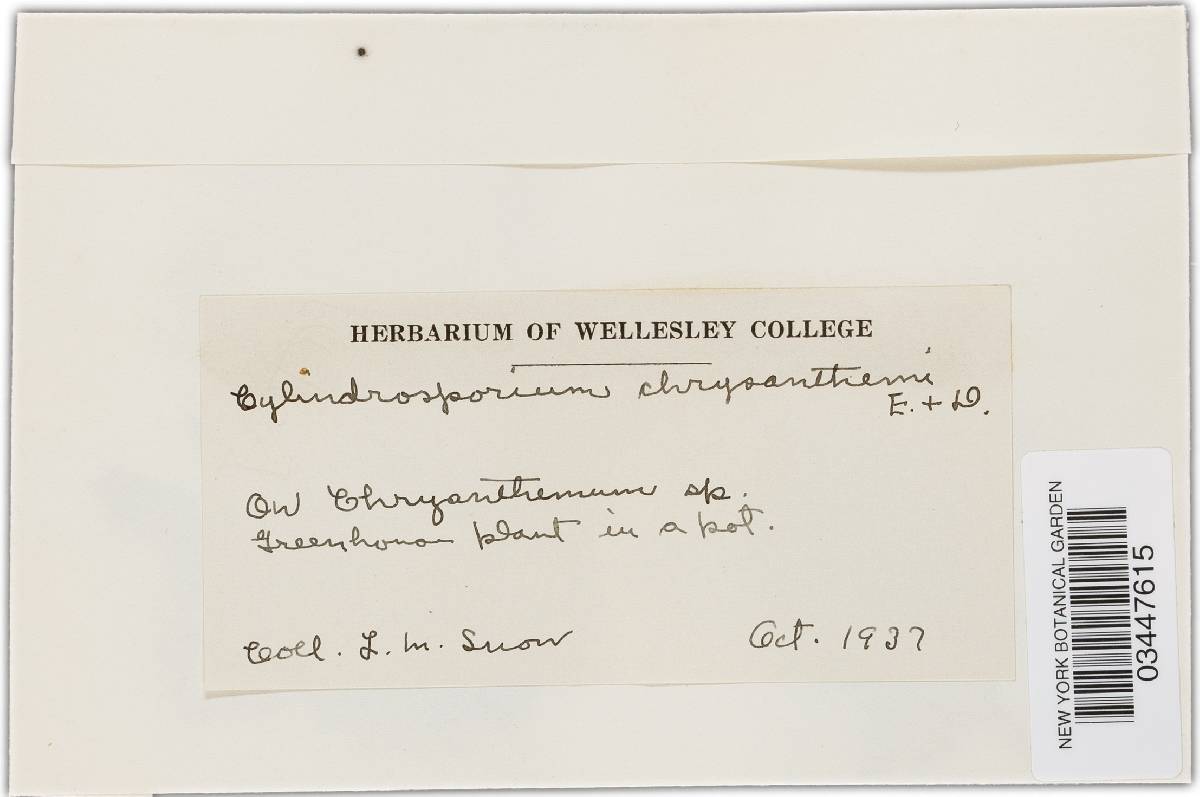 HERBARIUM OF WELLESLEY COLLEGE
Cylindrosporium chrysanthemi
E. + D.
On Chrysanthemum sp.
Greenhouse plant in a pot.
Coll. L. M. Snow
Oct. 1937
NEW YORK BOTANICAL GARDEN
03447615